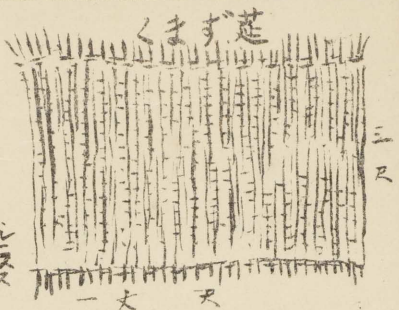 くまず莚
三尺
一丈 尺